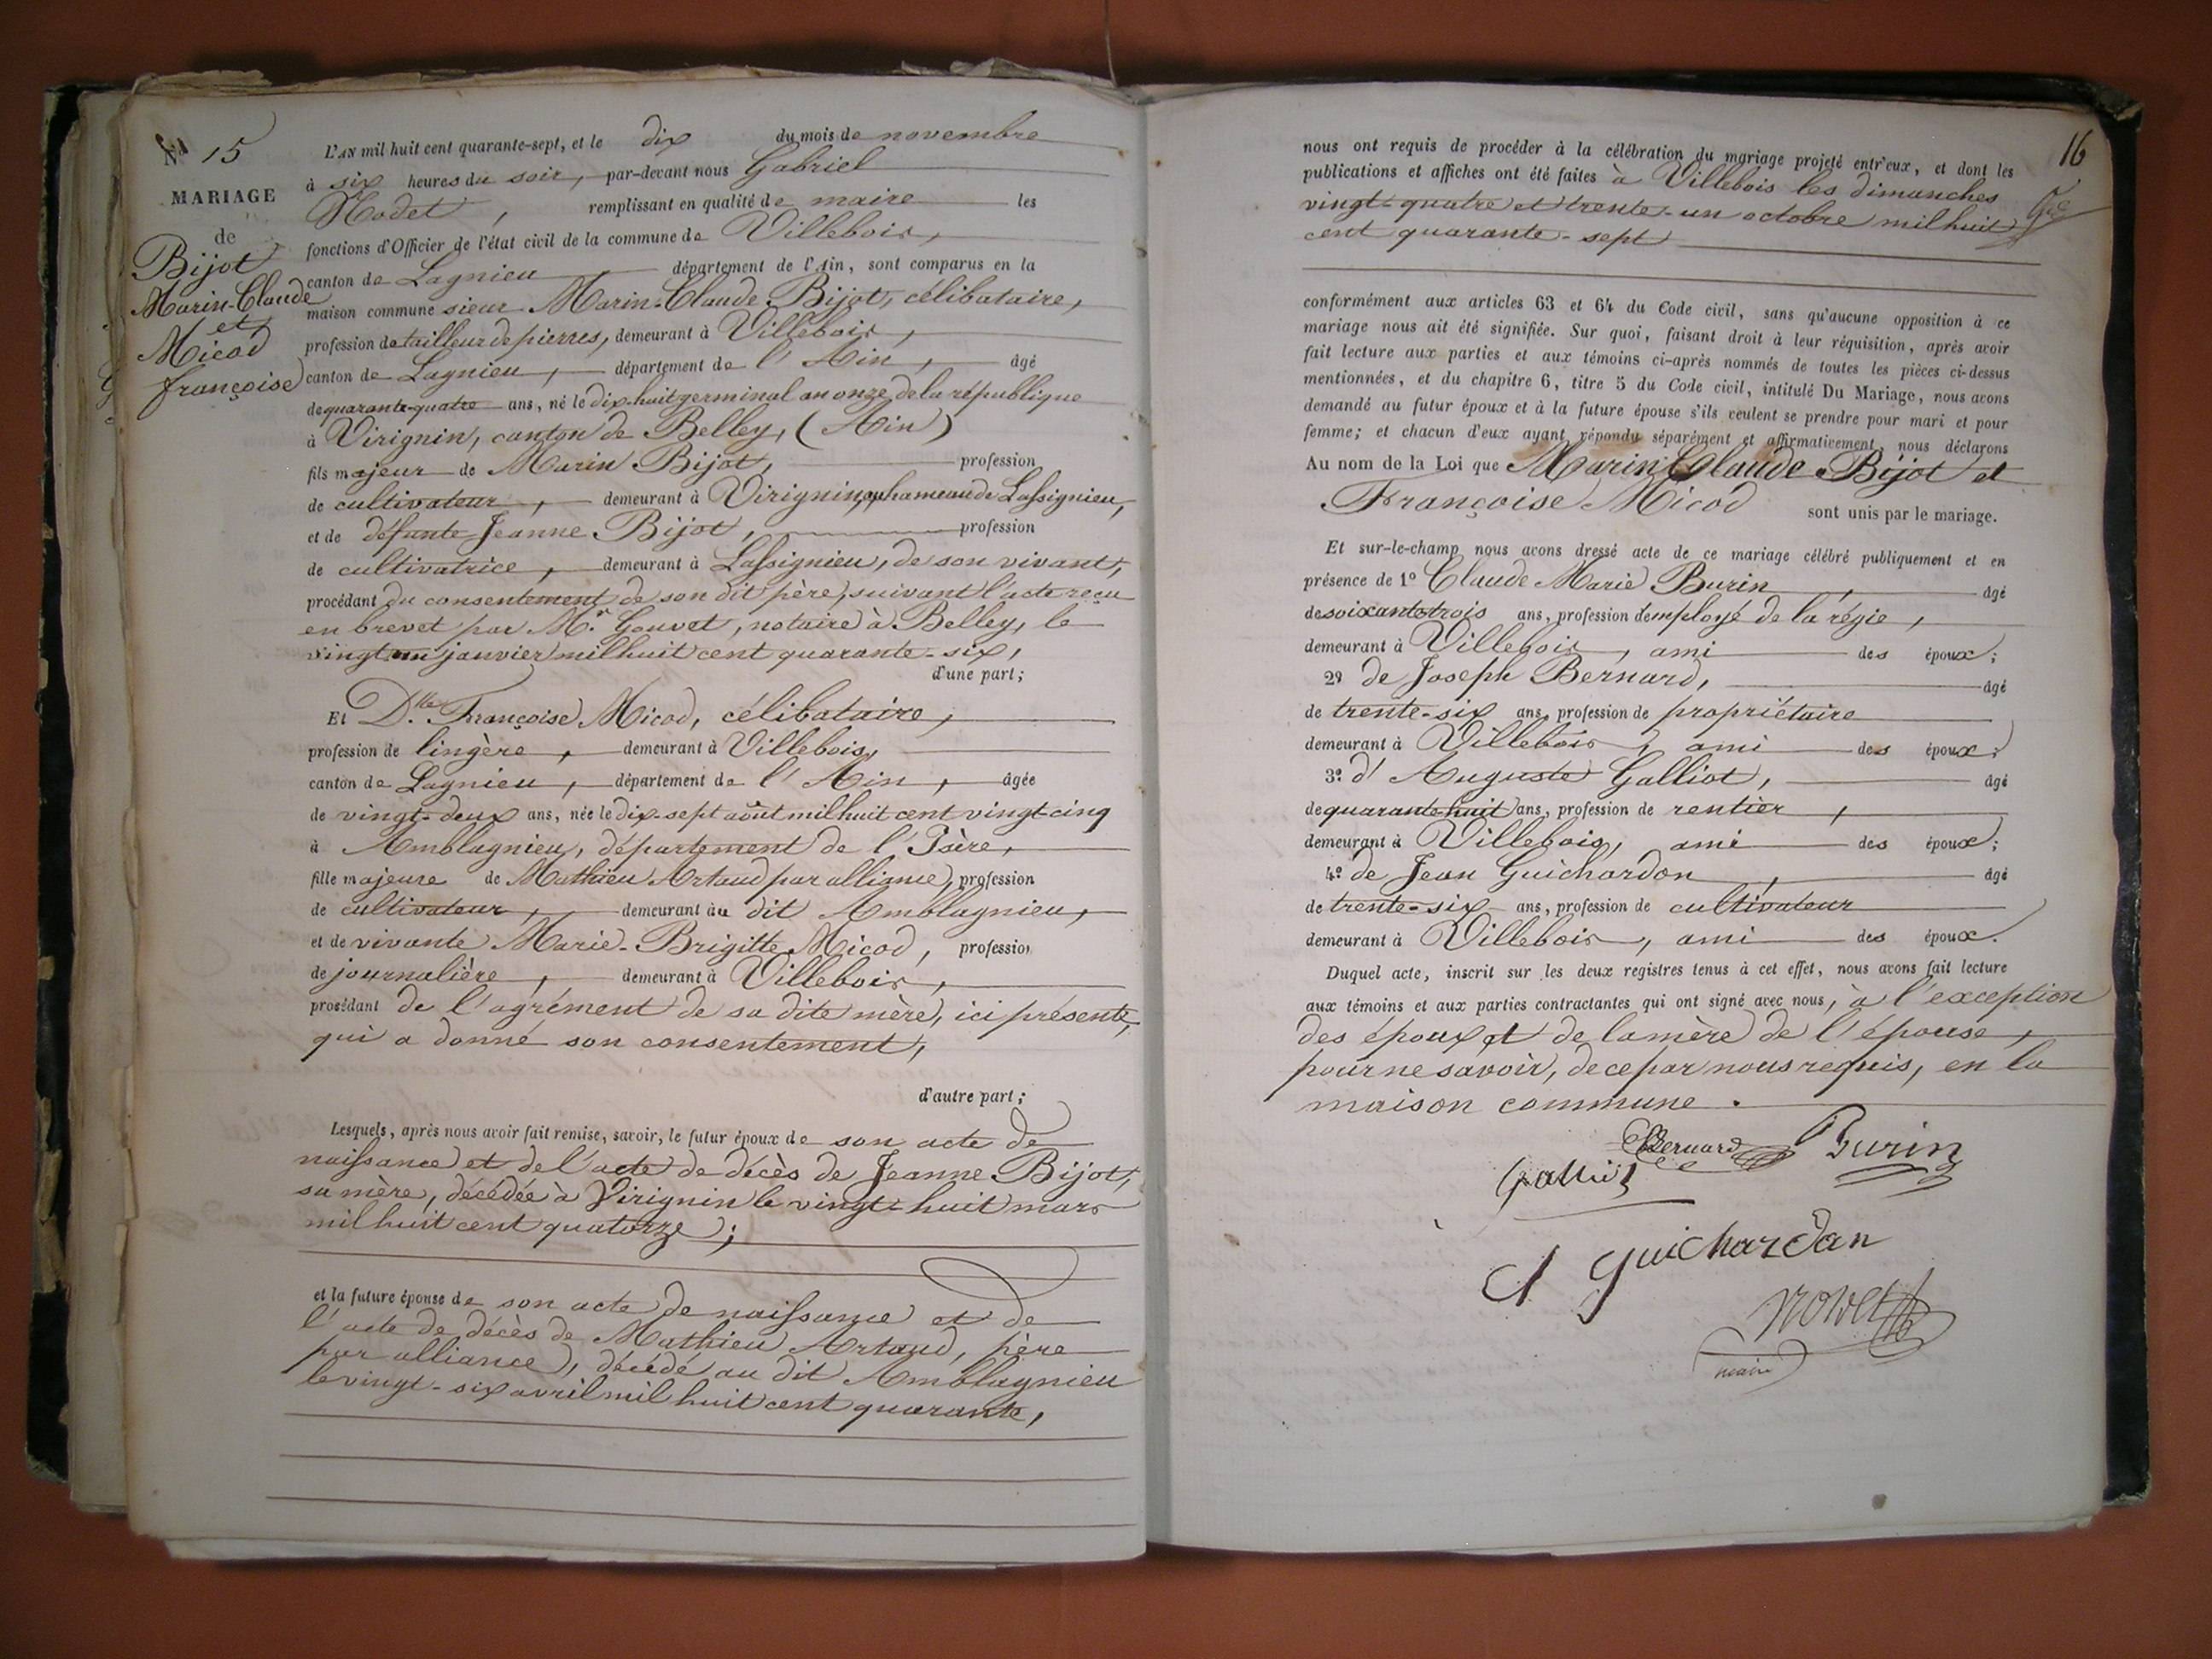 N° 15
MARIAGE
de
Bijot
Marin-Claude
et
Micod
françoise
L'AN mil huit cent quarante-sept, et le dix du mois de novembre
à six heures du soir, par-devant nous Gabriel
Nodet, remplissant en qualité de maire les
fonctions d'Officier de l'état civil de la commune de Villebois,
canton de Lagnieu département de l'Ain, sont comparus en la
maison commune sieur Marin-Claude Bijot, célibataire,
profession de tailleur de pierres, demeurant à Villebois,
canton de Lagnieu, département de l'Ain, âgé
de quarante-quatre ans, né le dix-huit germinal an onze de la république
à Virignin, canton de Belley, (Ain)
fils majeur de Marin Bijot, profession
de cultivateur, demeurant à Virignin, hameau de Lassignieu,
et de défunte Jeanne Bijot, profession
de cultivatrice, demeurant à Lassignieu, de son vivant,
procédant du consentement de son dit père, suivant l'acte reçu
en brevet par Mr. Gouvet, notaire à Belley, le
vingt-un janvier mil huit cent quarante-six,
d'une part;
Et Dlle Françoise Micod, célibataire,
profession de lingère, demeurant à Villebois,
canton de Lagnieu, département de l'Ain, âgée
de vingt-deux ans, née le dix-sept août mil huit cent vingt-cinq
à Amblagnieu, département de l'Isère,
fille majeure de Mathieu Artaud par alliance, profession
de cultivateur, demeurant au dit Amblagnieu,
et de vivante Marie-Brigitte Micod, profession
de journalière, demeurant à Villebois,
procédant de l'agrément de sa dite mère, ici présente,
qui a donné son consentement,
d'autre part;
Lesquels, après nous avoir fait remise, savoir, le futur époux de son acte de
naissance et de l'acte de décès de Jeanne Bijot,
sa mère, décédée à Virignin le vingt-huit mars
mil huit cent quatorze;
et la future épouse de son acte de naissance et de
l'acte de décès de Mathieu Artaud, père
par alliance, décédé au dit Amblagnieu
le vingt-six avril mil huit cent quarante,
16
nous ont requis de procéder à la célébration du mariage projeté entr'eux, et dont les
publications et affiches ont été faites à Villebois les dimanches
vingt-quatre et trente-un octobre mil huit
cent quarante-sept
conformément aux articles 63 et 64 du Code civil, sans qu'aucune opposition à ce
mariage nous ait été signifiée. Sur quoi, faisant droit à leur réquisition, après avoir
fait lecture aux parties et aux témoins ci-après nommés de toutes les pièces ci-dessus
mentionnées, et du chapitre 6, titre 5 du Code civil, intitulé Du Mariage, nous avons
demandé au futur époux et à la future épouse s'ils veulent se prendre pour mari et pour
femme; et chacun d'eux ayant répondu séparément et affirmativement, nous déclarons
Au nom de la Loi que Marin Claude Bijot et
Françoise Micod sont unis par le mariage.
Et sur-le-champ nous avons dressé acte de ce mariage célébré publiquement et en
présence de 1° Claude Marie Burin, âgé
de soixante-trois ans, profession d'employé de la régie,
demeurant à Villebois, ami des époux;
2° de Joseph Bernard, âgé
de trente-six ans, profession de propriétaire
demeurant à Villebois, ami des époux;
3° d'Auguste Galliot, âgé
de quarante-huit ans, profession de rentier,
demeurant à Villebois, ami des époux;
4° de Jean Guichardon, âgé
de trente-six ans, profession de cultivateur
demeurant à Villebois, ami des époux.
Duquel acte, inscrit sur les deux registres tenus à cet effet, nous avons fait lecture
aux témoins et aux parties contractantes qui ont signé avec nous, à l'exception
des époux et de la mère de l'épouse,
pour ne savoir, de ce par nous requis, en la
maison commune.
Bernard Burin
Galliot
Guichardan
Nodet
maire